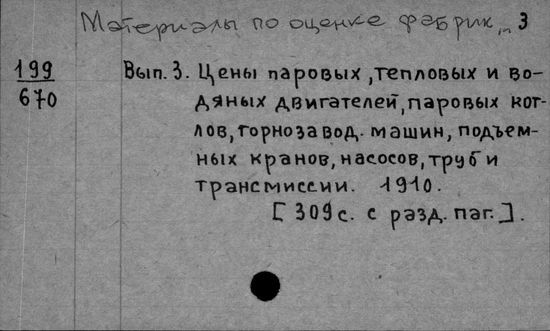 Материалы по оценке фабрик, 3
199
670
Вып. 3. Цены паровых, тепловых и во-
дяных двигателей, паровых кот-
лов, горнозавод. машин, подъем-
ных кранов, насосов, труб и
трансмиссии. 1910.
[309 с. с разд. паг.].